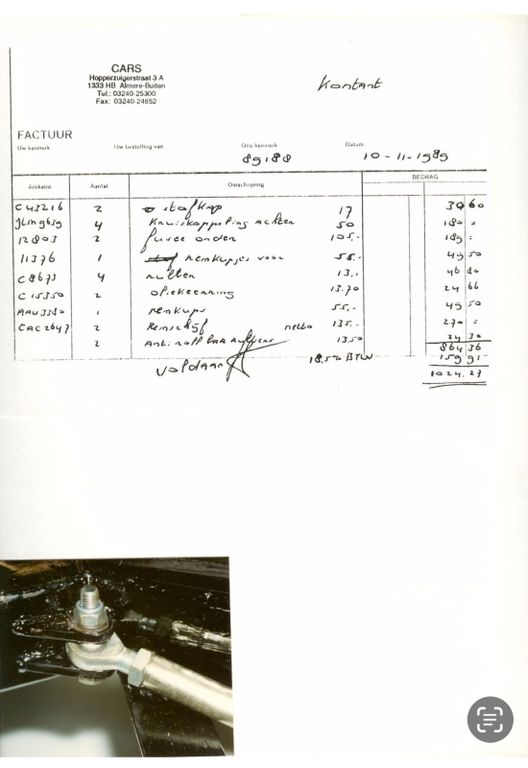 CARS
Hopperzuigerstraat 3 A
1333 HB Almere-Buiten
Tel.: 03240-25300
Fax: 03240-24852
Kontant
FACTUUR
Uw kenmerk Uw bestelling van Ons kenmerk Datum
89188 10-11-1989
Artikelnr. Aantal Omschrijving BEDRAG
C43216 2 stofkap 17 30 60
4 Kruiskoppeling achter 50 180
12803 2 fusee onden 105.- 189
11376 1 remkupjes voor 55.- 49 50
C8673 4 rullen 13.- 46 80
C15350 2 oliekeerring 13.70 24 66
AAU3380 1 remkups 55.- 49 50
CAC2647 2 Remschijf netto 135.- 270
2 Anti roll bar rubbers 13.50 24 30
864 36
voldaan 18.5% BTW 159 91
1024.27